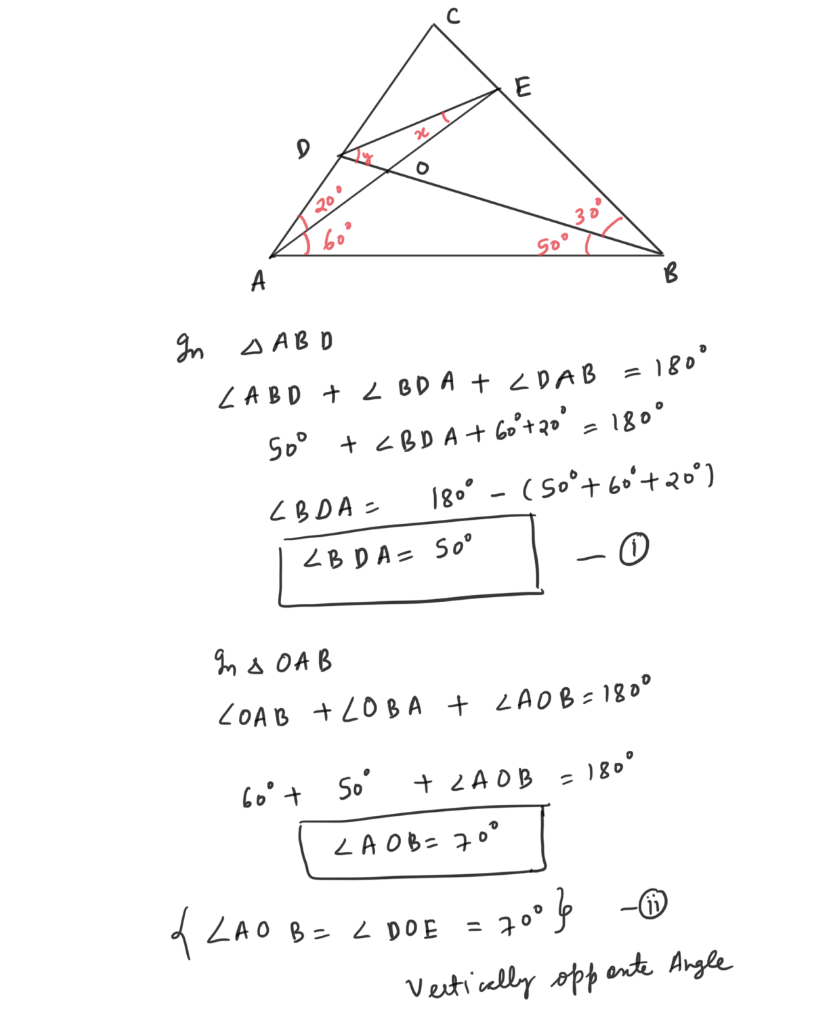 C
E
D
x
y
O
20°
30°
60°
50°
A
B
In △ABD
∠ABD + ∠BDA + ∠DAB = 180°
50° + ∠BDA + 60°+20° = 180°
∠BDA = 180° - (50°+60°+20°)
∠BDA = 50° — (i)
In △OAB
∠OAB + ∠OBA + ∠AOB = 180°
60° + 50° + ∠AOB = 180°
∠AOB = 70°
{∠AOB = ∠DOE = 70°} — (ii)
Vertically Angle